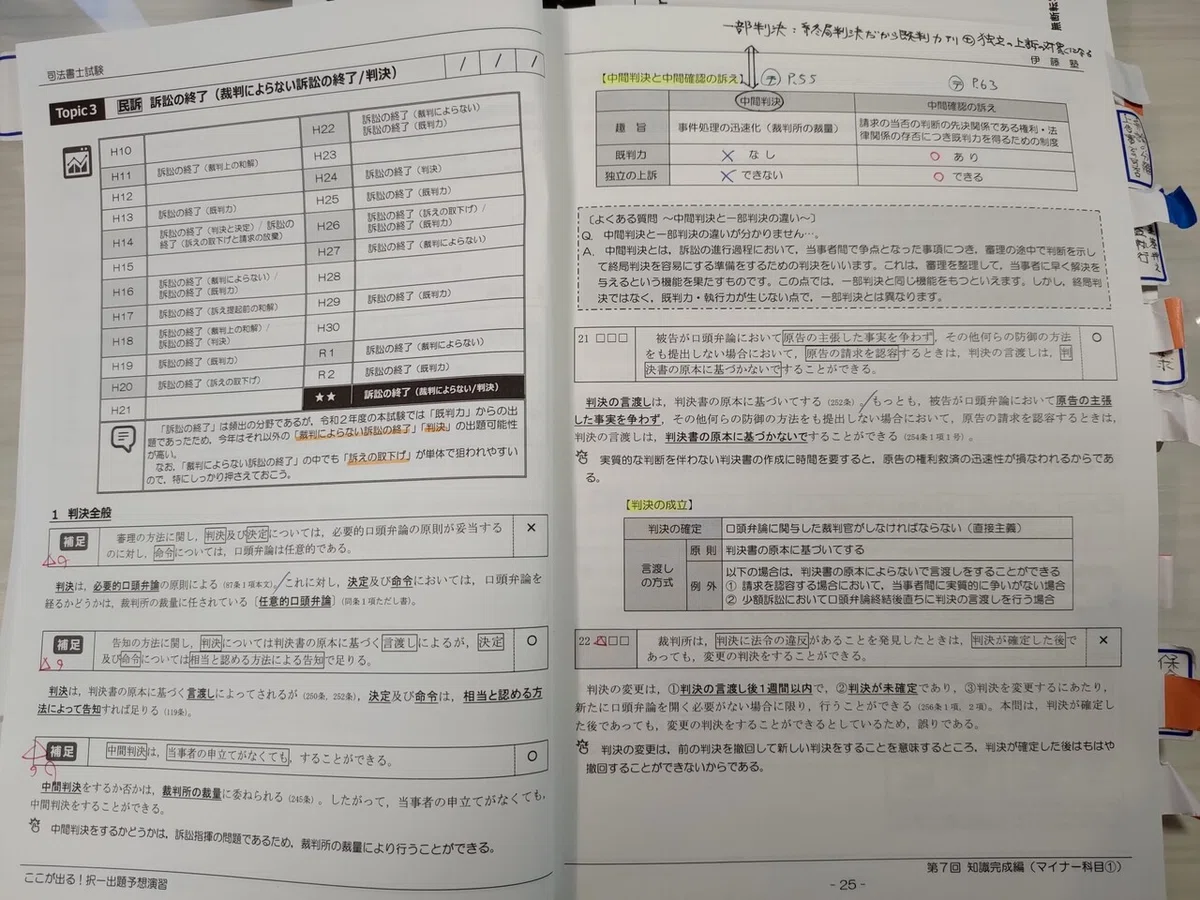 司法書士試験
Topic 3 民訴 訴訟の終了（裁判によらない訴訟の終了/判決） / / /
H10
H11 訴訟の終了（裁判上の和解）
H12
H13 訴訟の終了（既判力）
H14 訴訟の終了（判決と決定）/ 訴訟の
終了（訴えの取下げと請求の放棄）
H15
H16 訴訟の終了（裁判によらない）/
訴訟の終了（既判力）
H17 訴訟の終了（訴え提起前の和解）
H18 訴訟の終了（裁判上の和解）/
訴訟の終了（判決）
H19 訴訟の終了（既判力）
H20 訴訟の終了（訴えの取下げ）
H21
H22 訴訟の終了（裁判によらない）
訴訟の終了（既判力）
H23
H24 訴訟の終了（判決）
H25 訴訟の終了（既判力）
H26 訴訟の終了（訴えの取下げ）/
訴訟の終了（既判力）
H27 訴訟の終了（裁判によらない）
H28
H29 訴訟の終了（既判力）
H30
R1 訴訟の終了（裁判によらない）
R2 訴訟の終了（既判力）
★★ 訴訟の終了（裁判によらない/判決）
「訴訟の終了」は頻出の分野であるが，令和２年度の本試験では「既判力」からの出
題であったため，今年はそれ以外の「裁判によらない訴訟の終了」「判決」の出題可能性
が高い。
なお，「裁判によらない訴訟の終了」の中でも「訴えの取下げ」が単体で狙われやすい
ので，特にしっかり押さえておこう。
1 判決全般
補足 審理の方法に関し，判決及び決定については，必要的口頭弁論の原則が妥当する
のに対し，命令については，口頭弁論は任意的である。 ×
判決は，必要的口頭弁論の原則による（87条１項本文）。これに対し，決定及び命令においては，口頭弁論を
経るかどうかは，裁判所の裁量に任されている〔任意的口頭弁論〕（同条１項ただし書）。
補足 告知の方法に関し，判決については判決書の原本に基づく言渡しによるが，決定
及び命令については相当と認める方法による告知で足りる。 ○
判決は，判決書の原本に基づく言渡しによってされるが（250条，252条），決定及び命令は，相当と認める方
法によって告知すれば足りる（119条）。
補足 中間判決は，当事者の申立てがなくても，することができる。 ○
中間判決をするか否かは，裁判所の裁量に委ねられる（245条）。したがって，当事者の申立てがなくても，
中間判決をすることができる。
中間判決をするかどうかは，訴訟指揮の問題であるため，裁判所の裁量により行うことができる。
ここが出る！択一出題予想演習
一部判決：終局判決だから既判力アリ 独立の上訴の対象になる
伊藤塾
【中間判決と中間確認の訴え】 テ P.55 テ P.63
中間判決 中間確認の訴え
趣旨 事件処理の迅速化（裁判所の裁量） 請求の当否の判断の先決関係である権利・法
律関係の存否につき既判力を得るための制度
既判力 × なし ○ あり
独立の上訴 × できない ○ できる
〔よくある質問 ～中間判決と一部判決の違い～〕
Q. 中間判決と一部判決の違いが分かりません…。
A. 中間判決とは，訴訟の進行過程において，当事者間で争点となった事項につき，審理の途中で判断を示し
て終局判決を容易にする準備をするための判決をいいます。これは，審理を整理して，当事者に早く解決を
与えるという機能を果たすものです。この点では，一部判決と同じ機能をもつといえます。しかし，終局判
決ではなく，既判力・執行力が生じない点で，一部判決とは異なります。
21 □□□ 被告が口頭弁論において原告の主張した事実を争わず，その他何らの防御の方法
をも提出しない場合において，原告の請求を認容するときは，判決の言渡しは，判
決書の原本に基づかないですることができる。 ○
判決の言渡しは，判決書の原本に基づいてする（252条）。もっとも，被告が口頭弁論において原告の主張
した事実を争わず，その他何らの防御の方法をも提出しない場合において，原告の請求を認容するときは，
判決の言渡しは，判決書の原本に基づかないですることができる（254条１項１号）。
実質的な判断を伴わない判決書の作成に時間を要すると，原告の権利救済の迅速性が損なわれるからであ
る。
【判決の成立】
判決の確定 口頭弁論に関与した裁判官がしなければならない（直接主義）
言渡し
の方式
原則 判決書の原本に基づいてする
例外 以下の場合は，判決書の原本によらないで言渡しをすることができる
① 請求を認容する場合において，当事者間に実質的に争いがない場合
② 少額訴訟において口頭弁論終結後直ちに判決の言渡しを行う場合
22 □□□ 裁判所は，判決に法令の違反があることを発見したときは，判決が確定した後で
あっても，変更の判決をすることができる。 ×
判決の変更は，①判決の言渡し後１週間以内で，②判決が未確定であり，③判決を変更するにあたり，
新たに口頭弁論を開く必要がない場合に限り，行うことができる（256条１項，２項）。本問は，判決が確定し
た後であっても，変更の判決をすることができるとしているため，誤りである。
判決の変更は，前の判決を撤回して新しい判決をすることを意味するところ，判決が確定した後はもはや
撤回することができないからである。
第７回 知識完成編（マイナー科目①）
- 25 -